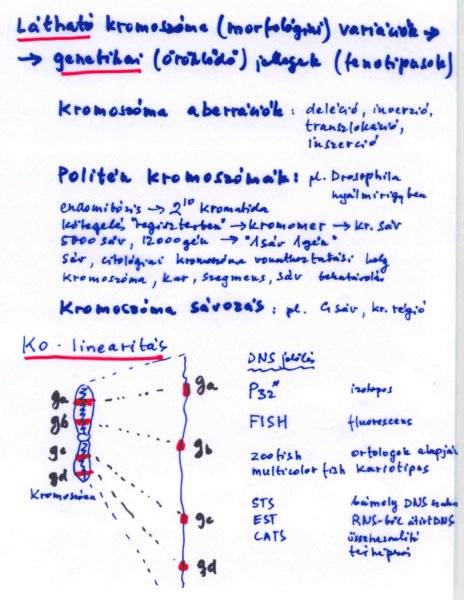 Látható kromoszóma (morfológiai) variációk →
→ genetikai (öröklődő) jellegek (fenotípusok)
Kromoszóma aberrációk: deléció, inverzió,
transzlokáció,
inszerció
Politén kromoszómák: pl. Drosophila
nyálmirigyben
endomitózis → 2¹⁰ kromatida
kötegelés "regiszterben" → kromomer → kr. sáv
5000 sáv, 12000 gén → "1 sáv 1 gén"
sáv, citológiai kromoszóma vonatkoztatási hely
kromoszóma, kar, szegmens, sáv behatárolás
Kromoszóma sávozás: pl. G sáv, kr. régió
Ko-linearitás
DNS jelölés
ga
ga
P32* izotópos
gb
FISH fluorescens
gb
gc
zoofish ortologok alapján
gd
multicolor fish kariotipus
Kromoszóma
STS bármely DNS szaka
gc
EST RNS-ből átírt DNS
CATS összehasonlító
térképezés
gd